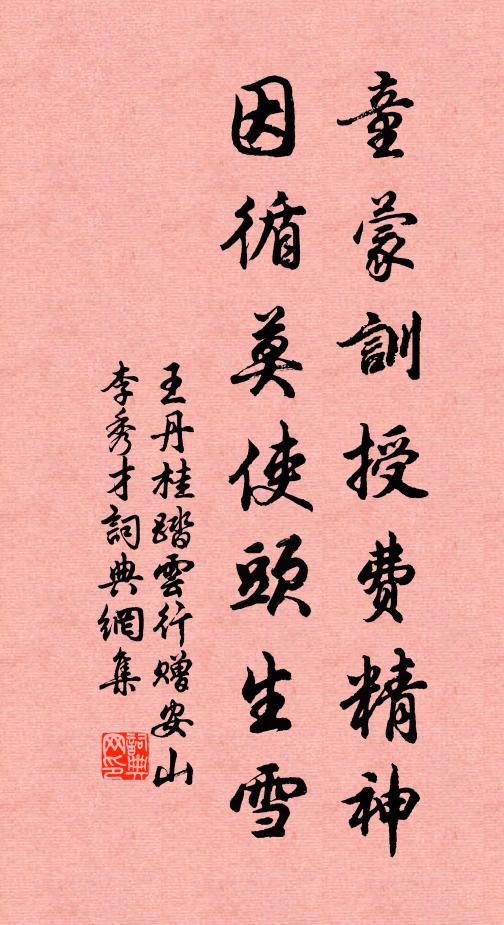 童蒙訓授費精神
因循莫使頭生雪
王丹桂踏雲行赠安山
李秀才詞典網集
詞典
网印